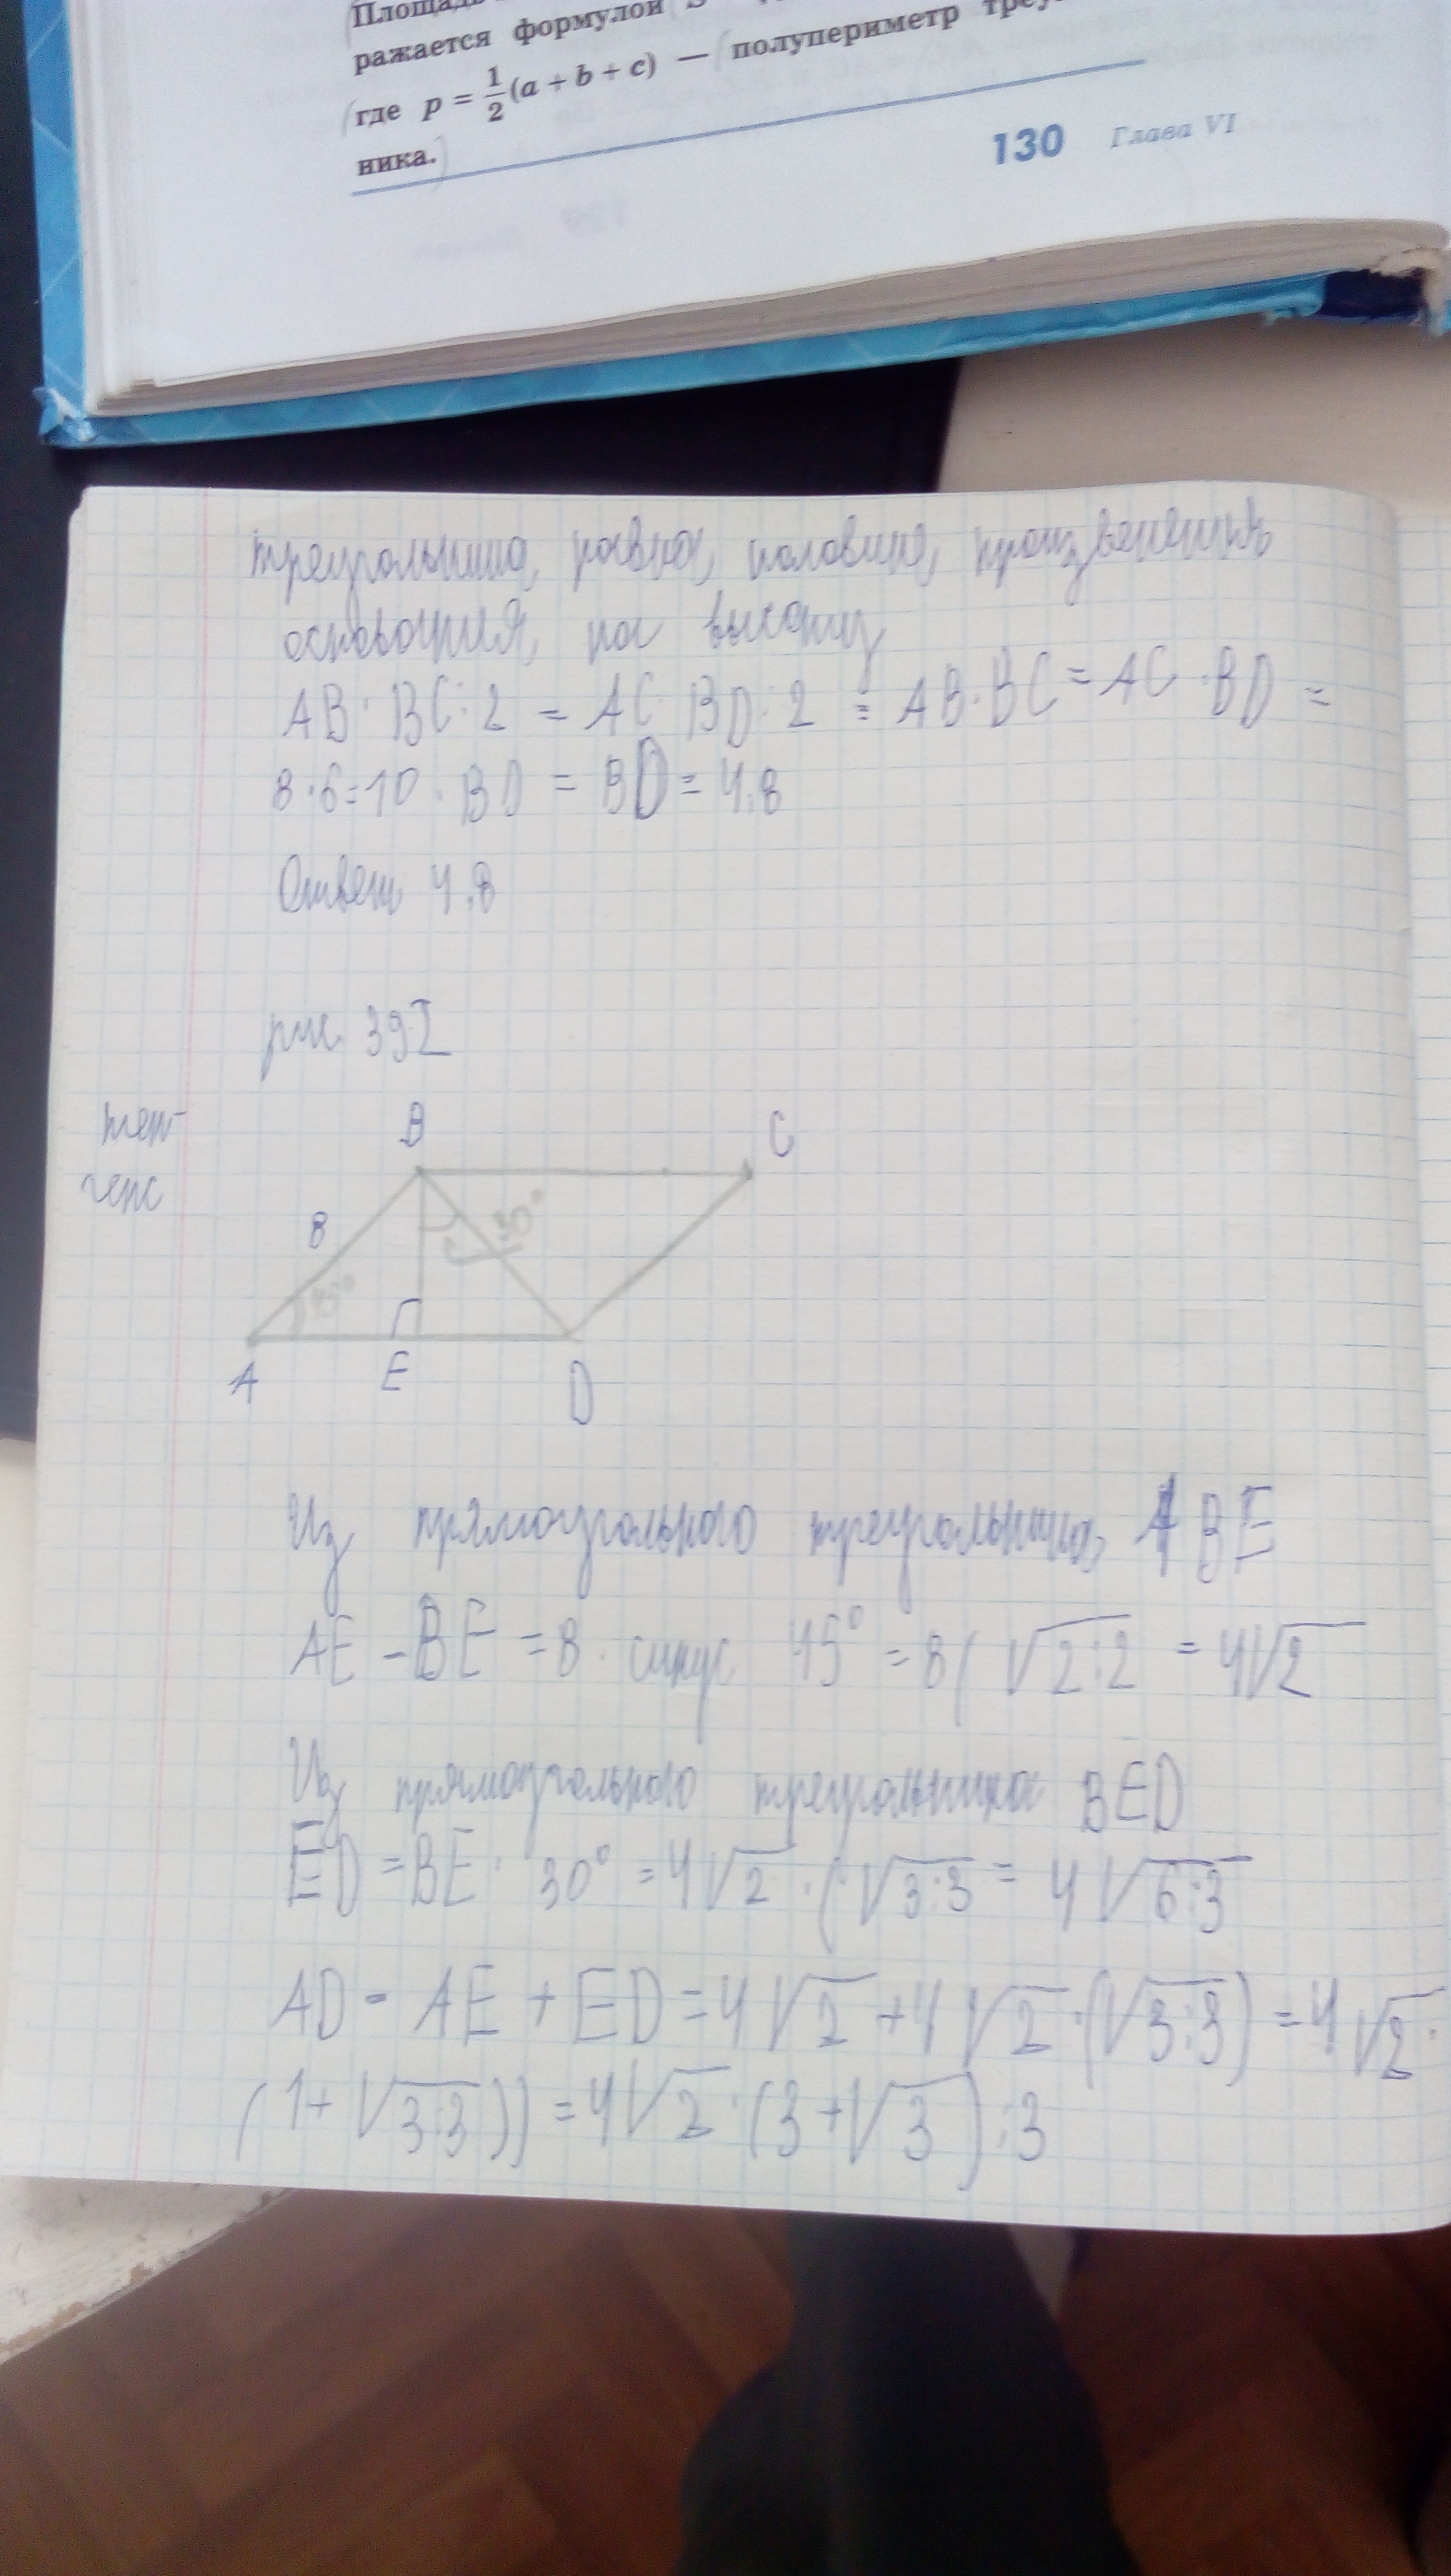 Площадь
ражается формулой S
где p = 1/2 (a + b + c) — полупериметр треу
ника.
130 Глава VI
треугольника равна половине произведения
основания на высоту
AB · BC : 2 = AC · BD : 2 = AB · BC = AC · BD =
8 · 6 = 10 · BD = BD = 4.8
Ответ 4.8
рис. 392
тен-
генс
B C
8 30°
45°
A E D
Из прямоугольного треугольника ABE
AE - BE = 8 · синус 45° = 8 ( √2:2 = 4√2
Из прямоугольного треугольника BED
ED = BE · 30° = 4√2 · (√3:3 = 4√6:3
AD - AE + ED = 4√2 + 4√2 · (√3:3) = 4√2 ·
(1 + √3:3)) = 4√2 · (3 + √3) : 3